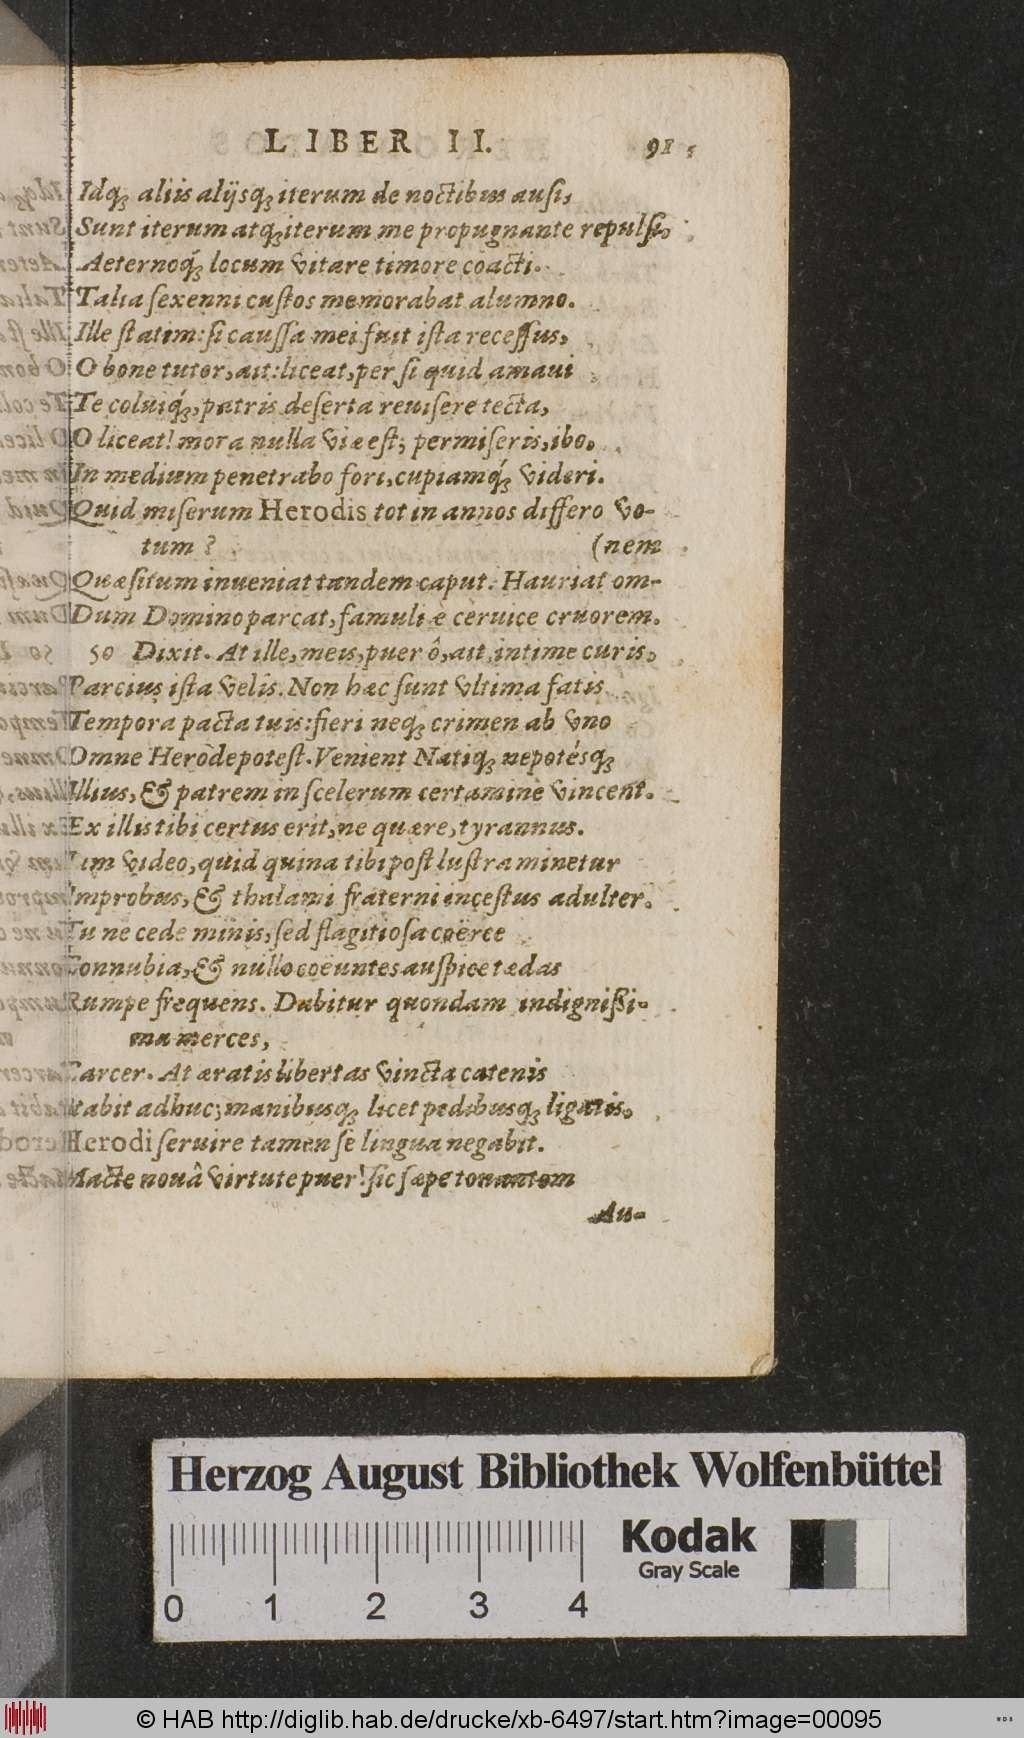 LIBER II. 91
Idq́ꝫ aliis alijsqꝫ iterum de noctibus ausi,
Sunt iterum atqꝫ iterum me propugnante repulsi,
Aeternoq́ꝫ locum vitare timore coacti.
Talia sexenni custos memorabat alumno.
Ille statim: si caussa mei fuit ista recessus,
O bone tutor, ait: liceat, per si quid amaui
Te coluiq́ꝫ, patris deserta reuisere tecta,
O liceat! mora nulla viæ est; permiseris, ibo.
In medium penetrabo fori, cupiamq́ꝫ videri.
Quid miserum Herodis tot in annos differo vo-
tum? (nem
Quæsitum inueniat tandem caput. Hauriat om-
Dum Domino parcat, famuli è ceruice cruorem.
50 Dixit. At ille, meis, puer ô, ait, intime curis,
Parcius ista velis. Non hæc sunt vltima fatis
Tempora pacta tuis: fieri neqꝫ crimen ab vno
Omne Herode potest. Venient Natiqꝫ nepotésqꝫ
Illius, & patrem in scelerum certamine vincent.
Ex illis tibi certus erit, ne quære, tyrannus.
Iam video, quid quina tibi post lustra minetur
Improbus, & thalami fraterni incestus adulter.
Tu ne cede minis, sed flagitiosa coërce
Connubia, & nullo coëuntes auspice tædas
Rumpe frequens. Dabitur quondam indignißi-
ma merces,
Carcer. At æratis libertas vincta catenis
Stabit adhuc; manibusqꝫ licet pedibusqꝫ ligatis,
Herodi seruire tamen se lingua negabit.
Macte nouâ virtute puer! sic sæpe tonantem
Au-
Herzog August Bibliothek Wolfenbüttel
Kodak
Gray Scale
0 1 2 3 4
© HAB http://diglib.hab.de/drucke/xb-6497/start.htm?image=00095